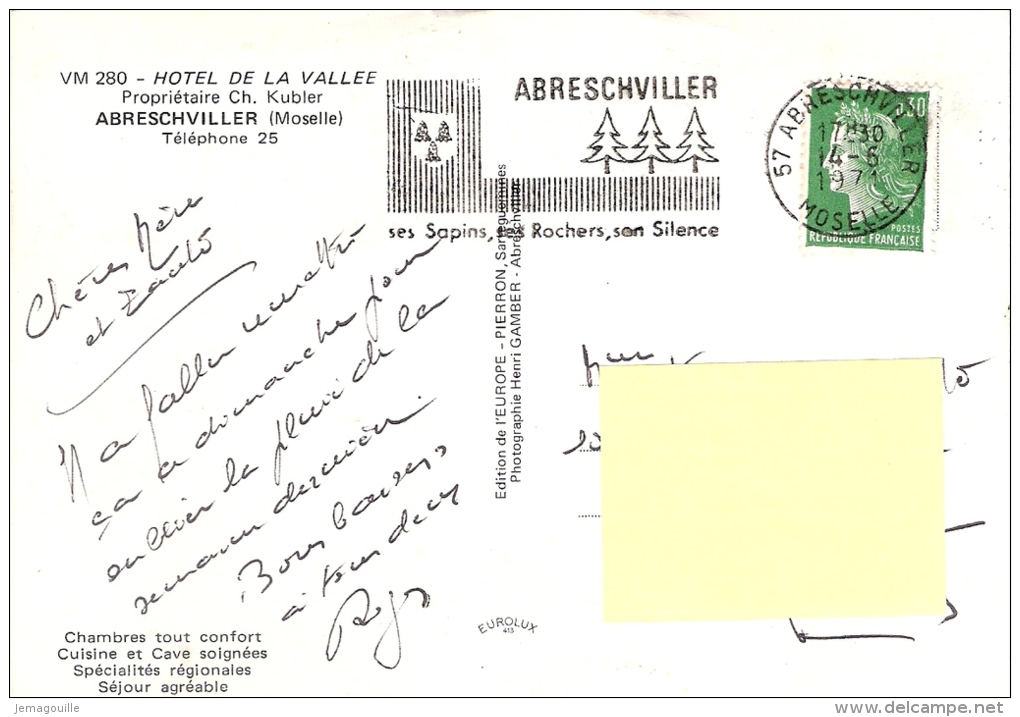 VM 280 - HOTEL DE LA VALLEE
Propriétaire Ch. Kubler
ABRESCHVILLER (Moselle)
Téléphone 25
ABRESCHVILLER
ses Sapins, ses Rochers, son Silence
57 ABRESCHVILLER
17H30
14-6
1971
MOSELLE
0,30
POSTES
REPUBLIQUE FRANÇAISE
Chères Mère
et
Il a fallu remettre
ça ce dimanche pour
oublier la pluie de la
semaine dernière.
Bons baisers
à tous deux
Roger
Edition de l'EUROPE - PIERRON, Sarreguemines
Photographie Henri GAMBER - Abreschviller
Chambres tout confort
Cuisine et Cave soignées
Spécialités régionales
Séjour agréable
EUROLUX
413
Jemagouille
delcampe.net